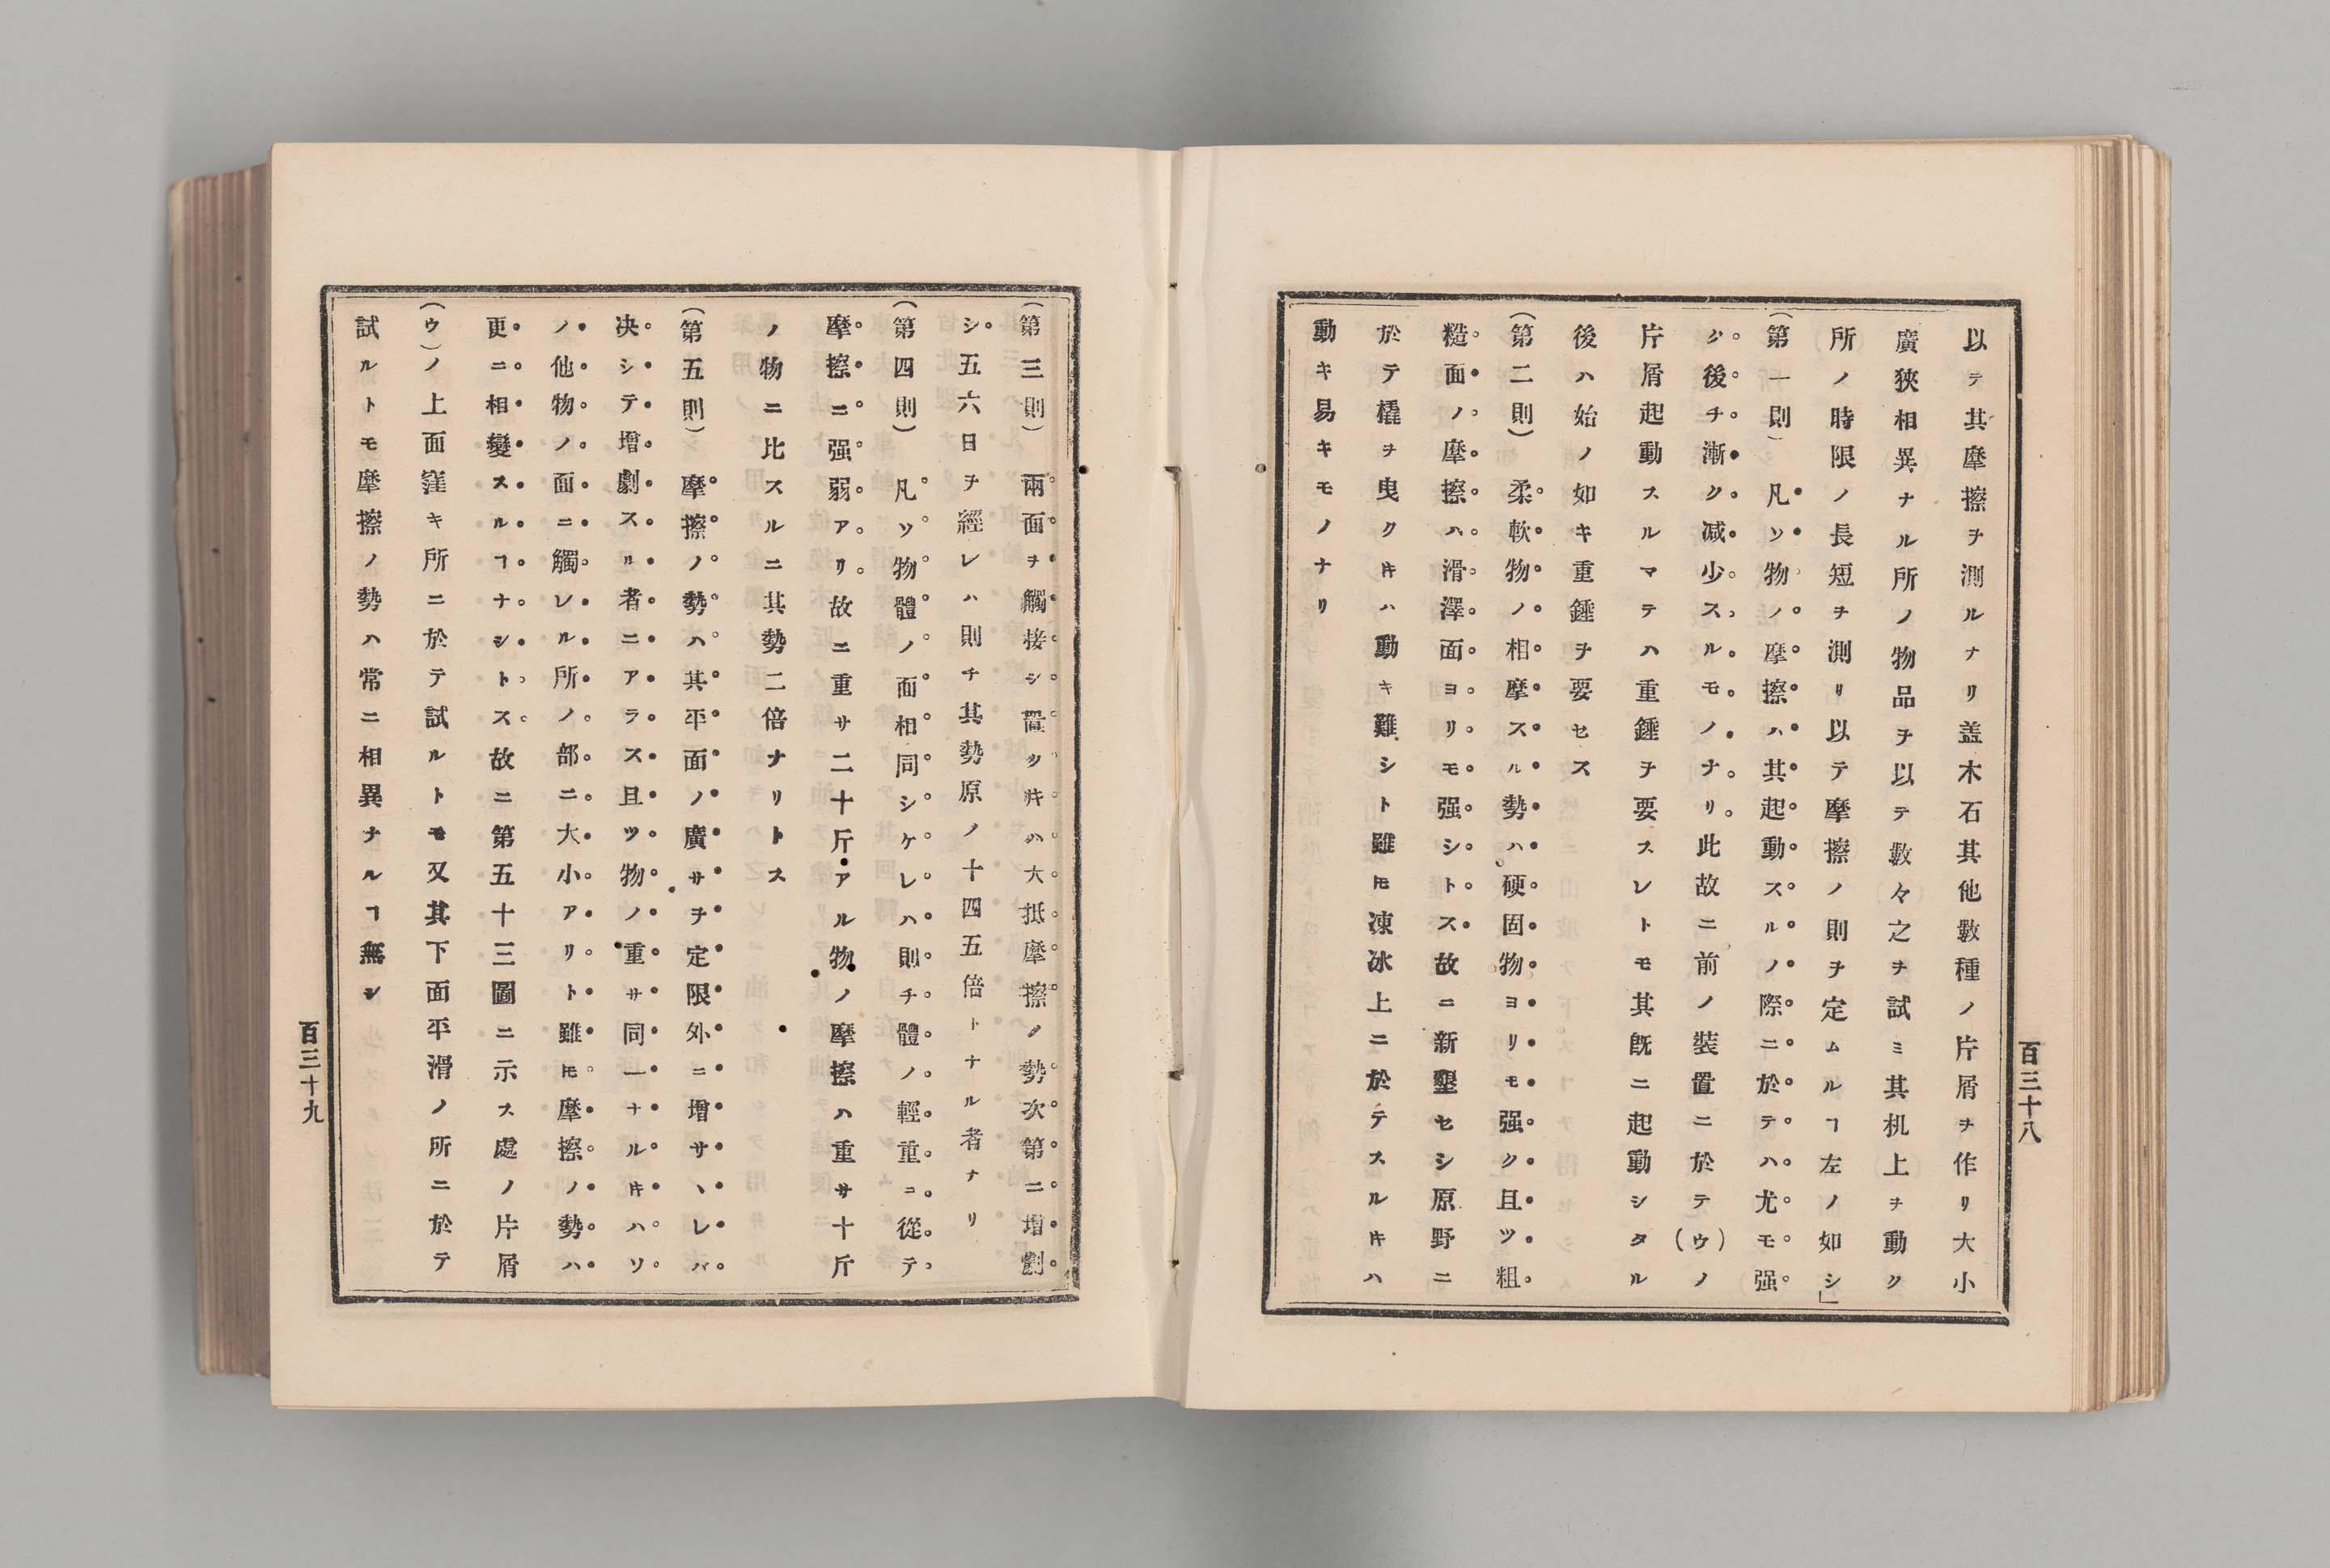 以テ其摩擦ヲ測ルナリ盖木石其他數種ノ片屑ヲ作リ大小
廣狹相異ナル所ノ物品ヲ以テ數々之ヲ試ミ其机上ヲ動ク
所ノ時限ノ長短ヲ測リ以テ摩擦ノ則ヲ定ムルヿ左ノ如シ」
(第一則)凡ソ物ノ摩擦ハ其起動スルノ際ニ於テハ尤モ强
ク後チ漸ク减少スルモノナリ此故ニ前ノ裝置ニ於テ(ウ)ノ
片屑起動スルマテハ重錘ヲ要スレトモ其旣ニ起動シタル
後ハ始ノ如キ重錘ヲ要セス
(第二則)柔軟物ノ相摩スル勢ハ硬固物ヨリモ强ク且ツ粗
糙面ノ摩擦ハ滑澤面ヨリモ强シトス故ニ新墾セシ原野ニ
於テ橇ヲ曳クヰハ動キ難シト雖𪜈凍冰上ニ於テスルヰハ
動キ易キモノナリ
百三十八
(第三則)兩面ヲ觸接シ置クヰハ大抵摩擦ノ勢次第ニ增劇
シ五六日ヲ經レハ則チ其勢原ノ十四五倍トナル者ナリ
(第四則)凡ソ物體ノ面相同シケレハ則チ體ノ輕重ニ從テ
摩擦ニ强弱アリ故ニ重サ二十斤アル物ノ摩擦ハ重サ十斤
ノ物ニ比スルニ其勢二倍ナリトス
(第五則)摩擦ノ勢ハ其平面ノ廣サヲ定限外ニ增サヽレバ
决シテ增劇スル者ニアラス且ツ物ノ重サ同一ナルヰハソ
ノ他物ノ面ニ觸レル所ノ部ニ大小アリト雖𪜈摩擦ノ勢ハ
更ニ相變スルヿナシトス故ニ第五十三圖ニ示ス處ノ片屑
(ウ)ノ上面窪キ所ニ於テ試ルトモ又其下面平滑ノ所ニ於テ
試ルトモ摩擦ノ勢ハ常ニ相異ナルヿ無シ
百三十九